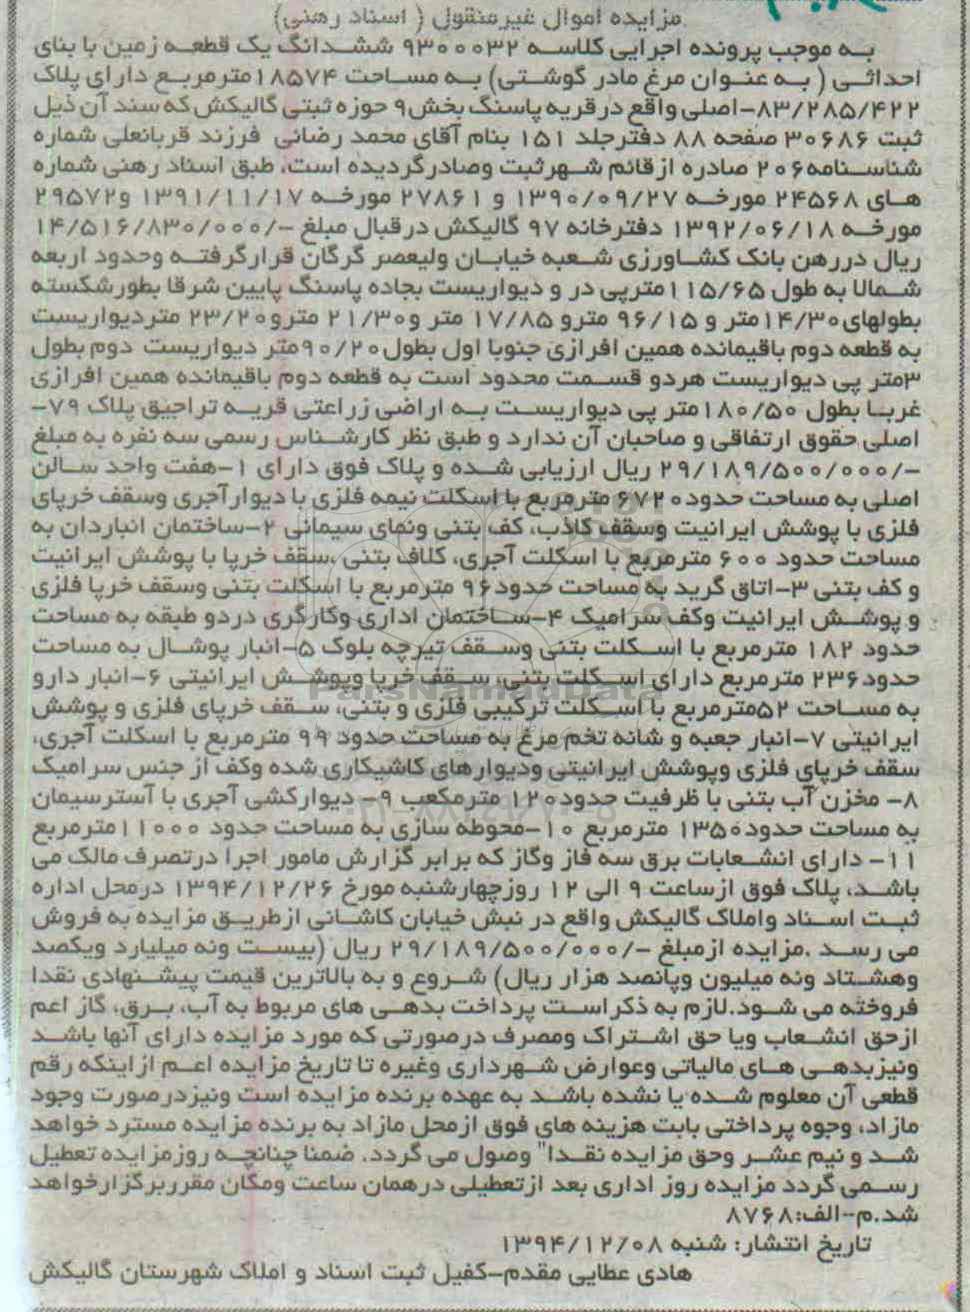 مزایده اموال غیرمنقول ( اسناد رهنی)
به موجب پرونده اجرایی کلاسه ۹۳۰۰۰۳۲ ششدانگ یک قطعه زمین با بنای
احداثی ( به عنوان مرغ مادر گوشتی) به مساحت ۱۸۵۷۴مترمربع دارای پلاک
۸۳/۲۸۵/۴۲۲-اصلی واقع در قریه پاسنگ بخش۹ حوزه ثبتی گالیکش که سند آن ذیل
ثبت ۳۰۶۸۶ صفحه ۸۸ دفترجلد ۱۵۱ بنام آقای محمد رضائی فرزند قربانعلی شماره
شناسنامه۲۰۶ صادره از قائم شهرثبت وصادرگردیده است، طبق اسناد رهنی شماره
های ۲۴۵۶۸ مورخه ۱۳۹۰/۰۹/۲۷ و ۲۷۸۶۱ مورخه ۱۳۹۱/۱۱/۱۷ و۲۹۵۷۲
مورخه ۱۳۹۲/۰۶/۱۸ دفترخانه ۹۷ گالیکش درقبال مبلغ -/۱۴/۵۱۶/۸۳۰/۰۰۰
ریال دررهن بانک کشاورزی شعبه خیابان ولیعصر گرگان قرارگرفته وحدود اربعه
شمالا به طول ۱۱۵/۶۵مترپی در و دیواریست بجاده پاسنگ پایین شرقا بطورشکسته
بطولهای۱۴/۳۰متر و ۹۶/۱۵ مترو ۱۷/۸۵ متر و۲۱/۳۰ مترو۲۳/۲۰ متردیواریست
به قطعه دوم باقیمانده همین افرازی جنوبا اول بطول۹۰/۲۰متر دیواریست دوم بطول
۳متر پی دیواریست هردو قسمت محدود است به قطعه دوم باقیمانده همین افرازی
غربا بطول ۱۸۰/۵۰متر پی دیواریست به اراضی زراعتی قریه تراجیق پلاک ۷۹-
اصلی حقوق ارتفاقی و صاحبان آن ندارد و طبق نظر کارشناس رسمی سه نفره به مبلغ
-/۲۹/۱۸۹/۵۰۰/۰۰۰ ریال ارزیابی شده و پلاک فوق دارای ۱-هفت واحد سالن
اصلی به مساحت حدود۶۷۲۰ مترمربع با اسکلت نیمه فلزی با دیوارآجری وسقف خرپای
فلزی با پوشش ایرانیت وسقف کاذب، کف بتنی ونمای سیمانی ۲-ساختمان انباردان به
مساحت حدود ۶۰۰ مترمربع با اسکلت آجری، کلاف بتنی ،سقف خرپا با پوشش ایرانیت
و کف بتنی ۳-اتاق گرید به مساحت حدود۹۶ مترمربع با اسکلت بتنی وسقف خرپا فلزی
و پوشش ایرانیت وکف سرامیک ۴-ساختمان اداری وکارگری دردو طبقه به مساحت
حدود ۱۸۲ مترمربع با اسکلت بتنی وسقف تیرچه بلوک ۵-انبار پوشال به مساحت
حدود۲۳۶ مترمربع دارای اسکلت بتنی، سقف خرپا وپوشش ایرانیتی ۶-انبار دارو
به مساحت ۵۲مترمربع با اسکلت ترکیبی فلزی و بتنی، سقف خرپای فلزی و پوشش
ایرانیتی ۷-انبار جعبه و شانه تخم مرغ به مساحت حدود ۹۹ مترمربع با اسکلت آجری،
سقف خرپای فلزی وپوشش ایرانیتی ودیوارهای کاشیکاری شده وکف از جنس سرامیک
۸- مخزن آب بتنی با ظرفیت حدود۱۲۰ مترمکعب ۹- دیوارکشی آجری با آسترسیمان
به مساحت حدود۱۳۵۰ مترمربع ۱۰-محوطه سازی به مساحت حدود ۱۱۰۰۰مترمربع
۱۱- دارای انشعابات برق سه فاز وگاز که برابر گزارش مامور اجرا درتصرف مالک می
باشد، پلاک فوق ازساعت ۹ الی ۱۲ روزچهارشنبه مورخ ۱۳۹۴/۱۲/۲۶ درمحل اداره
ثبت اسناد واملاک گالیکش واقع در نبش خیابان کاشانی ازطریق مزایده به فروش
می رسد ،مزایده ازمبلغ -/۲۹/۱۸۹/۵۰۰/۰۰۰ ریال (بیست ونه میلیارد ویکصد
وهشتاد ونه میلیون وپانصد هزار ریال) شروع و به بالاترین قیمت پیشنهادی نقدا
فروخته می شود.لازم به ذکراست پرداخت بدهی های مربوط به آب، برق، گاز اعم
ازحق انشعاب ویا حق اشتراک ومصرف درصورتی که مورد مزایده دارای آنها باشد
ونیزبدهی های مالیاتی وعوارض شهرداری وغیره تا تاریخ مزایده اعم ازاینکه رقم
قطعی آن معلوم شده یا نشده باشد به عهده برنده مزایده است ونیزدرصورت وجود
مازاد، وجوه پرداختی بابت هزینه های فوق ازمحل مازاد به برنده مزایده مسترد خواهد
شد و نیم عشر وحق مزایده نقدا" وصول می گردد، ضمنا چنانچه روزمزایده تعطیل
رسمی گردد مزایده روز اداری بعد ازتعطیلی درهمان ساعت ومکان مقرربرگزارخواهد
شد.م-الف:۸۷۶۸
تاریخ انتشار: شنبه ۱۳۹۴/۱۲/۰۸
هادی عطایی مقدم-کفیل ثبت اسناد و املاک شهرستان گالیکش
ParsNamadData